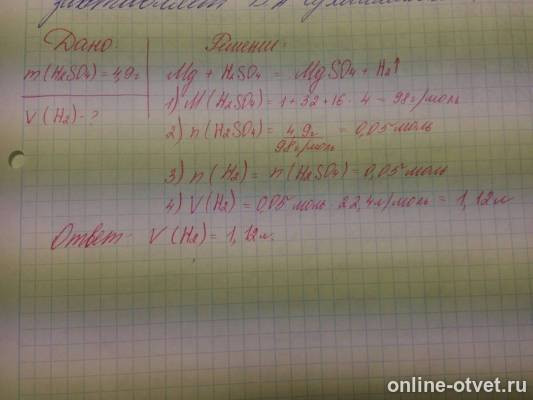 Дано: Решение:
m(H2SO4) = 4,9г Mg + H2SO4 = MgSO4 + H2↑
V(H2) - ? 1) M(H2SO4) = 1+32+16·4 = 98г/моль
2) n(H2SO4) = 4,9г / 98г/моль = 0,05моль
3) n(H2) = n(H2SO4) = 0,05моль
4) V(H2) = 0,05моль·22,4л/моль = 1,12л.
Ответ: V(H2) = 1,12л.
online-otvet.ru